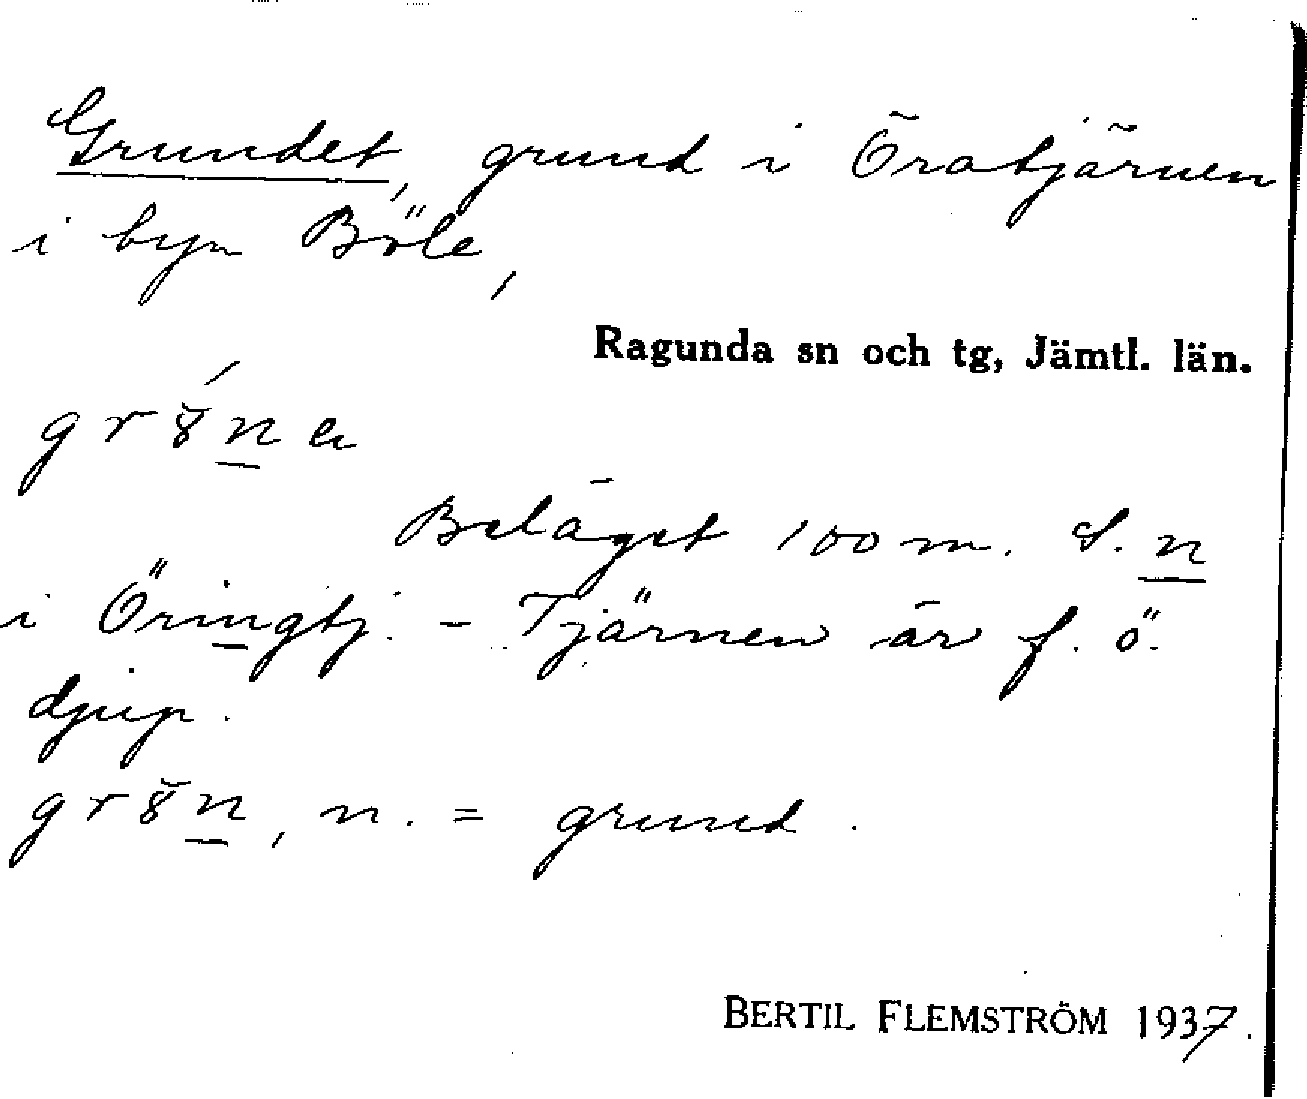 Grundet, grund i Öratjärnen
i byn Böle,
Ragunda sn och tg, Jämtl. län.
Beläget 100 m. S. n
i Öringtj. - Tjärnen är f. ö.
djup.
n. = grund.
BERTIL FLEMSTRÖM 1937.